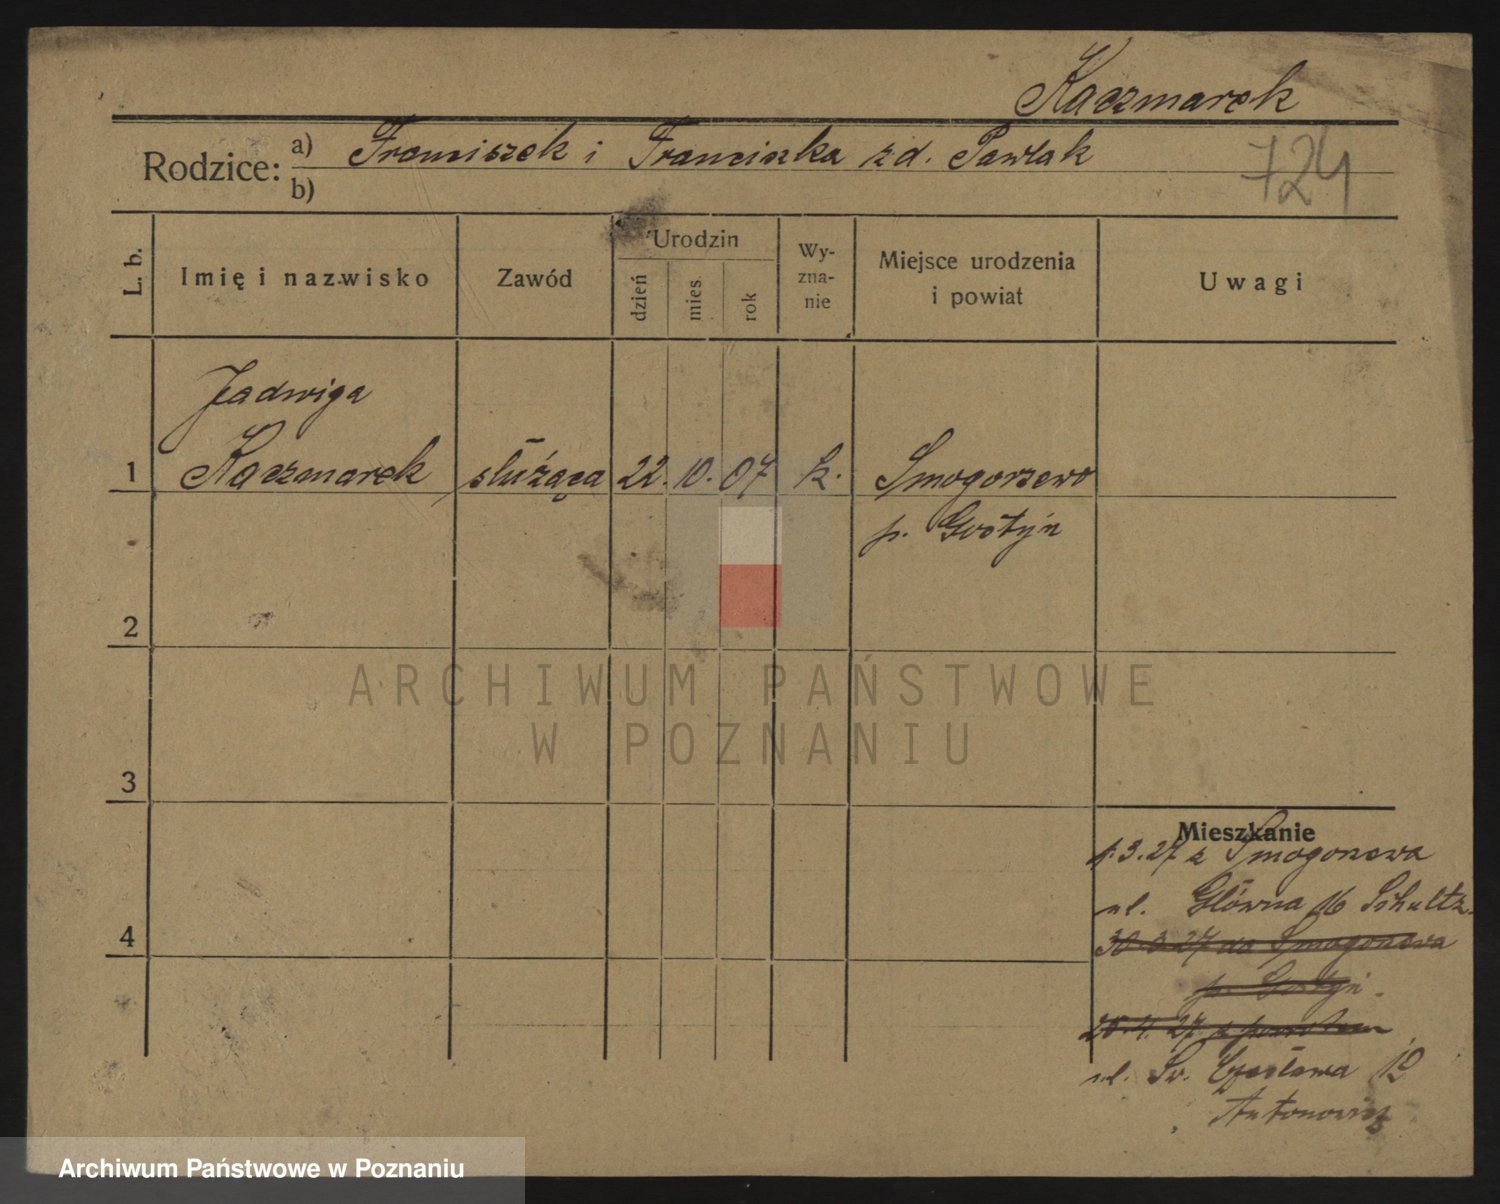 Kaczmarek
Rodzice: a) Franciszek i Franciszka z d. Pawlak
724
b)
L. b.
Imię i nazwisko
Zawód
Urodzin
dzień
mies.
rok
Wy-
zna-
nie
Miejsce urodzenia
i powiat
Uwagi
Jadwiga
1 Kaczmarek służąca 22. 10. 07 k. Smogorzewo
p. Gostyń
2
ARCHIWUM PAŃSTWOWE
W POZNANIU
3
Mieszkanie
1.3.27 z Smogorzewa
ul. Główna 16 Schultz.
4
30.3.27 do Smogorzewa
p. Gostyń.
25.4.27 z powrotem
ul. Św. Czesława 12
Antonowicz
Archiwum Państwowe w Poznaniu